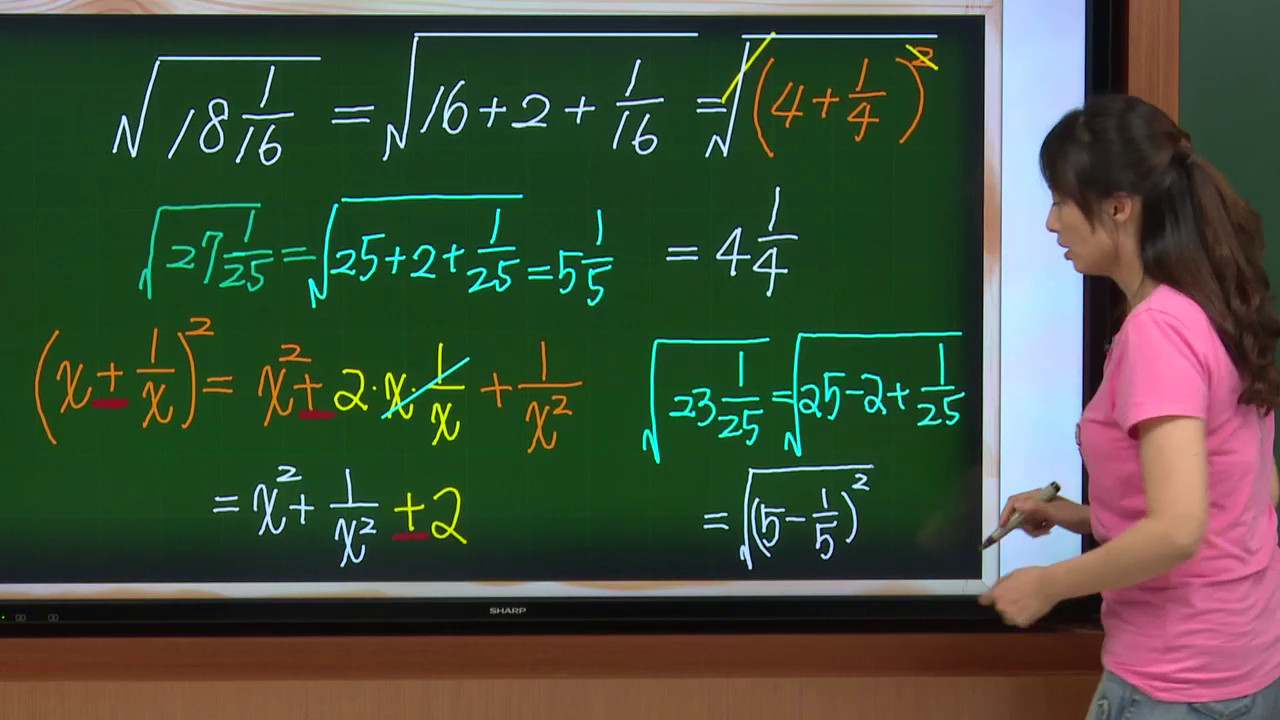 √(18 1/16) = √(16+2+1/16) = √((4+1/4)²)
√(27 1/25) = √(25+2+1/25) = 5 1/5
= 4 1/4
(x+1/x)² = x²+2·x·1/x+1/x²
= x²+1/x²+2
√(23 1/25) = √(25-2+1/25)
= √((5-1/5)²)
SHARP